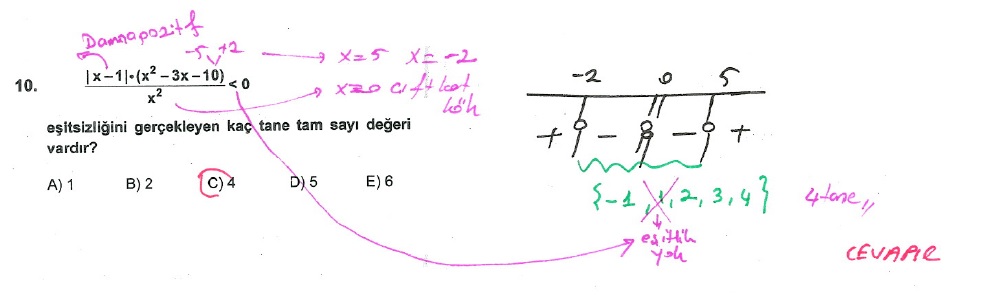 Daima pozitif
-5 +2
x=5 x=-2
10. |x-1|·(x² - 3x - 10) / x² < 0
x=0 Çift kat kök
eşitsizliğini gerçekleyen kaç tane tam sayı değeri
vardır?
A) 1 B) 2 C) 4 D) 5 E) 6
-2 0 5
+ - - +
{-1, 1, 2, 3, 4} 4 tane,,
eşitlik
yok